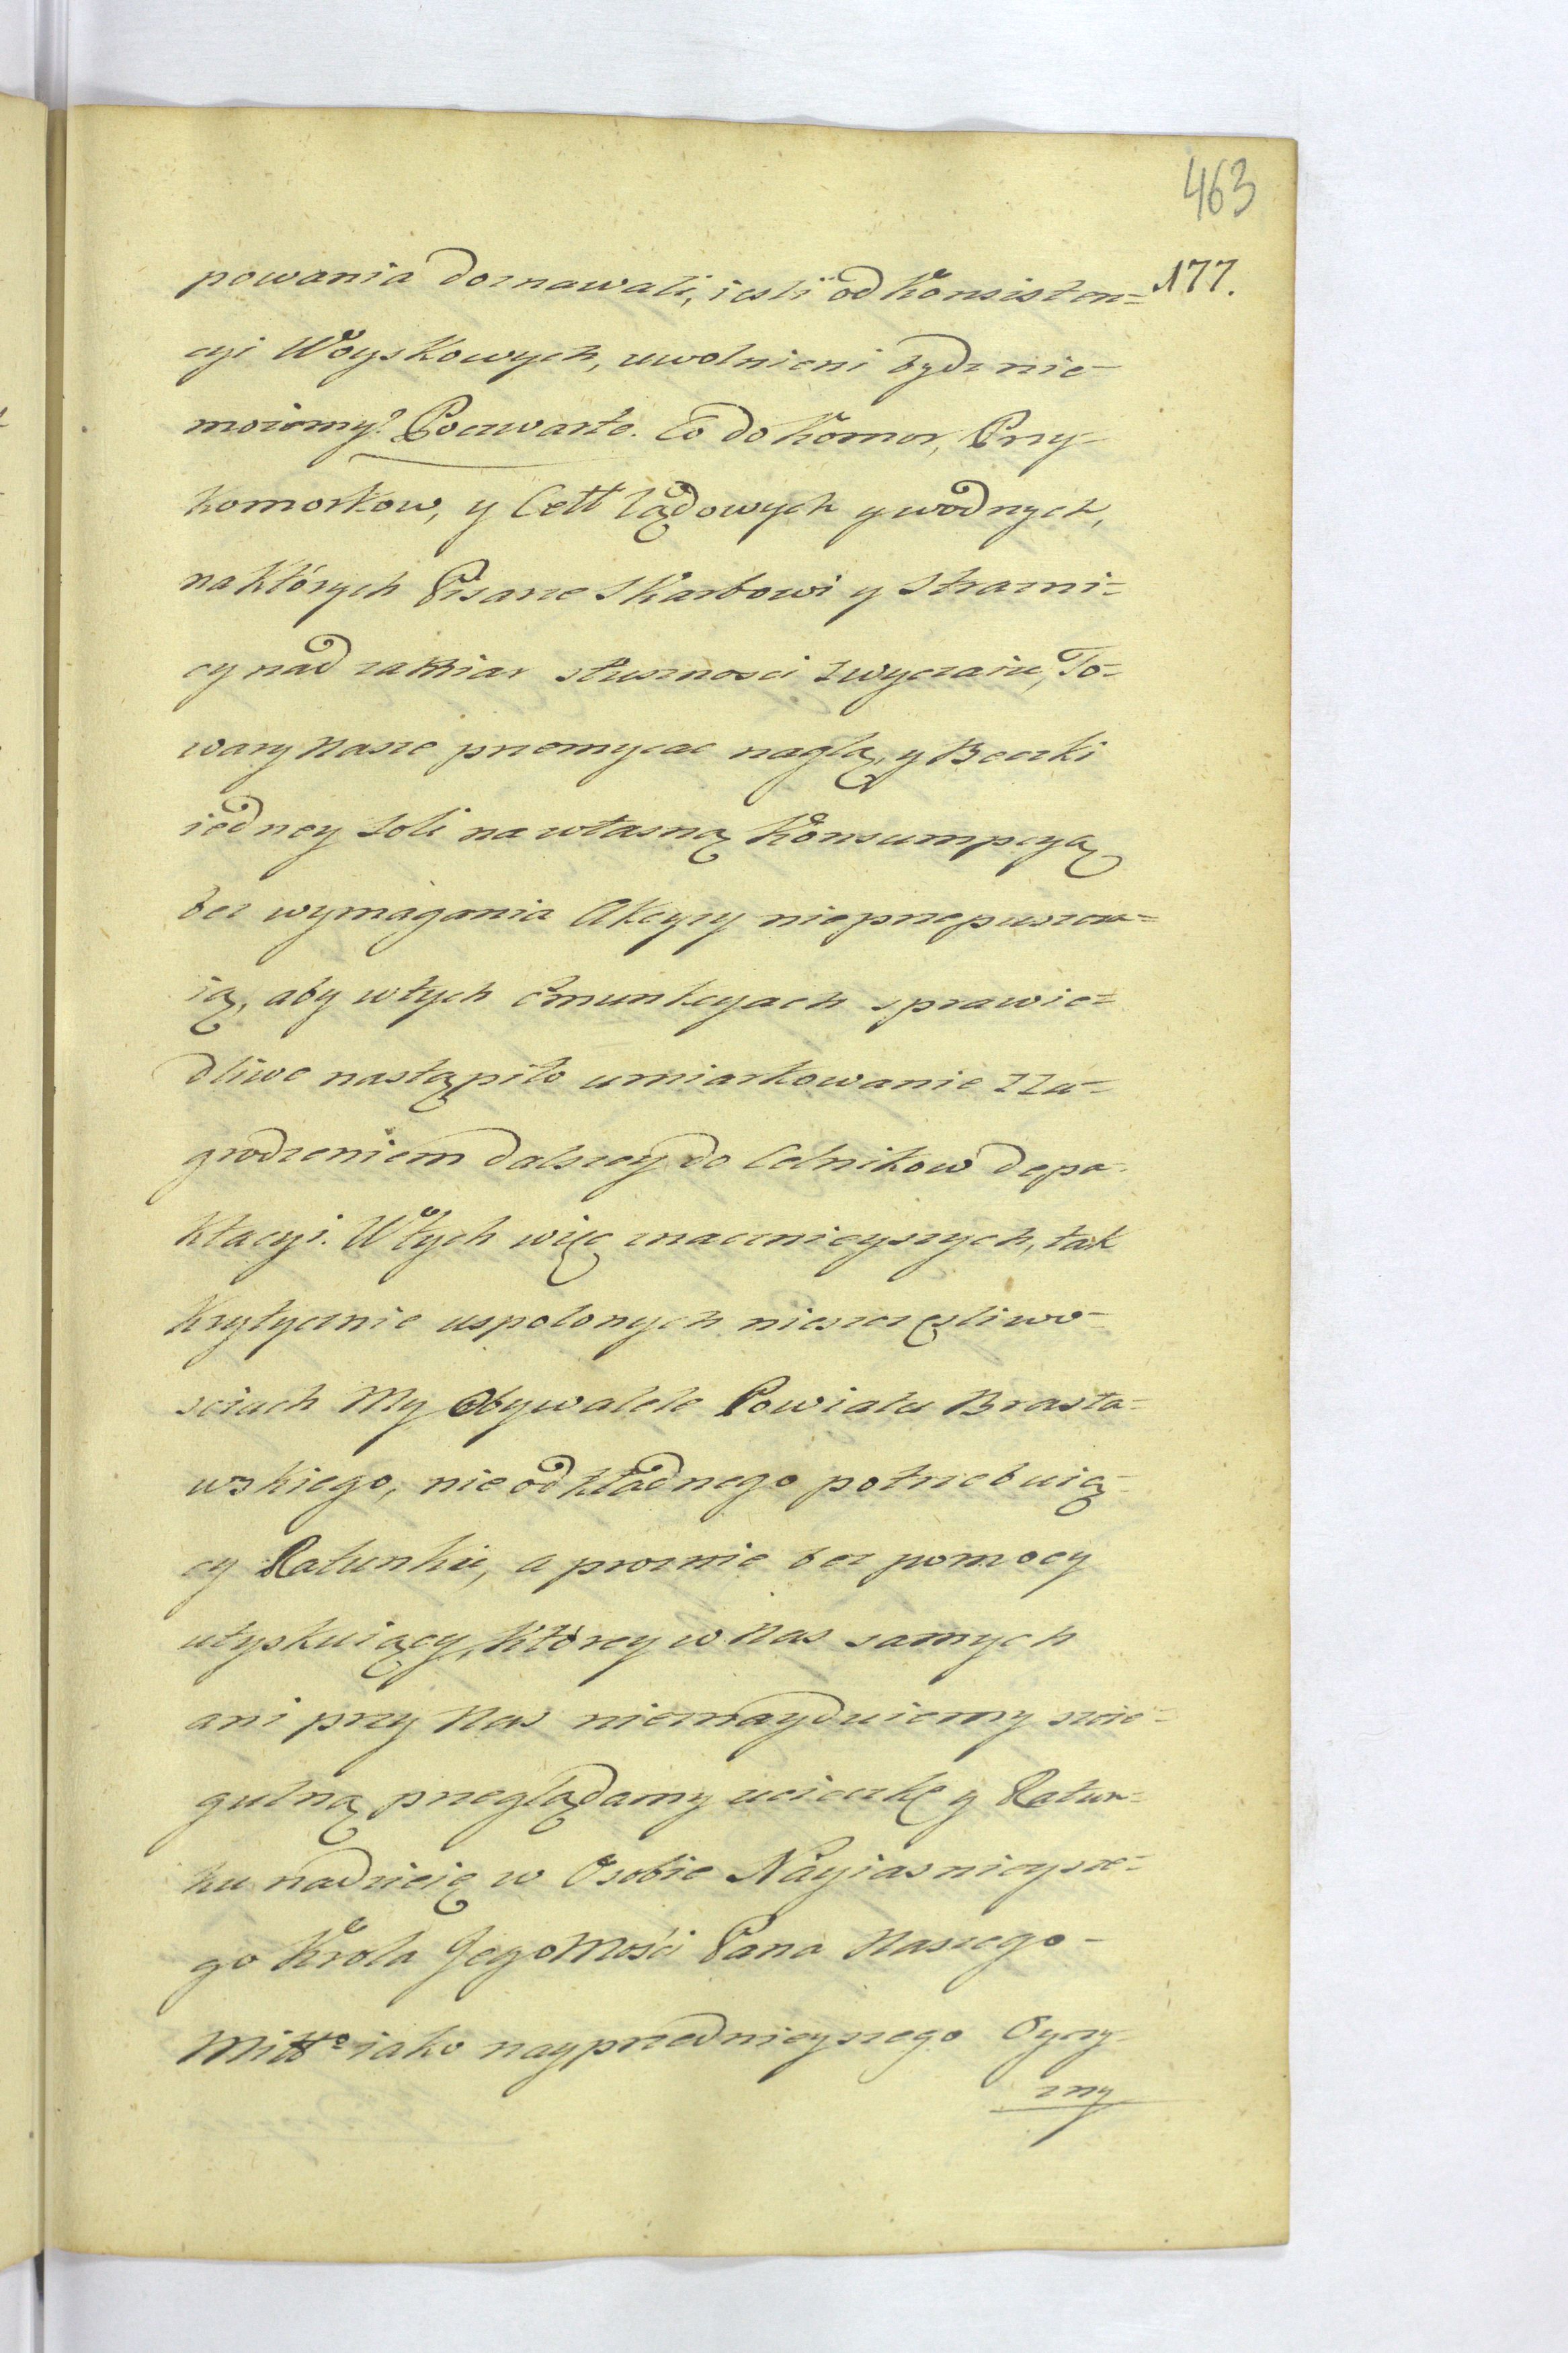 463
177.
powania doznawali, iesli od Konsisten=
cyi Woyskowych, uwolnieni bydz nie-
możemy? Poczwarte. Co do Komor, Przy-
komorkow, y Cełł lądowych y wodnych,
na których Pisarze Skarbowi y Strazni=
cy nad zamiar słusznosci zwyczaiu, To-
wary Nasze przemycac naglą, y Beczki
iedney Soli na własną Konsumpcyą
bez wymagania Akcyzy nieprzepuszcza=
ią, aby w tych emunkcyach sprawie=
dliwe nastąpiło umiarkowanie z Za-
grodzeniem dalszey do Celnikow depa-
ktacyi. W tych więc znacznieyszych, tak
Krytycznie uspolonych nieszczęsliwo-
sciach My Obywatele Powiatu Brasła-
wskiego, nie odkładnego potrzebuią-
cy Ratunku, a proznie bez pomocy
utyskuiący, którey w Nas samych
ani przy Nas nieznayduiemy szcze-
gulną przeglądamy ucieczkę y Ratun-
ku nadzieię w Osobie Nayiasnieysze-
go Krola JegoMości Pana Naszego-
Miłło iako nayprzednieyszego Oyczy-
zny